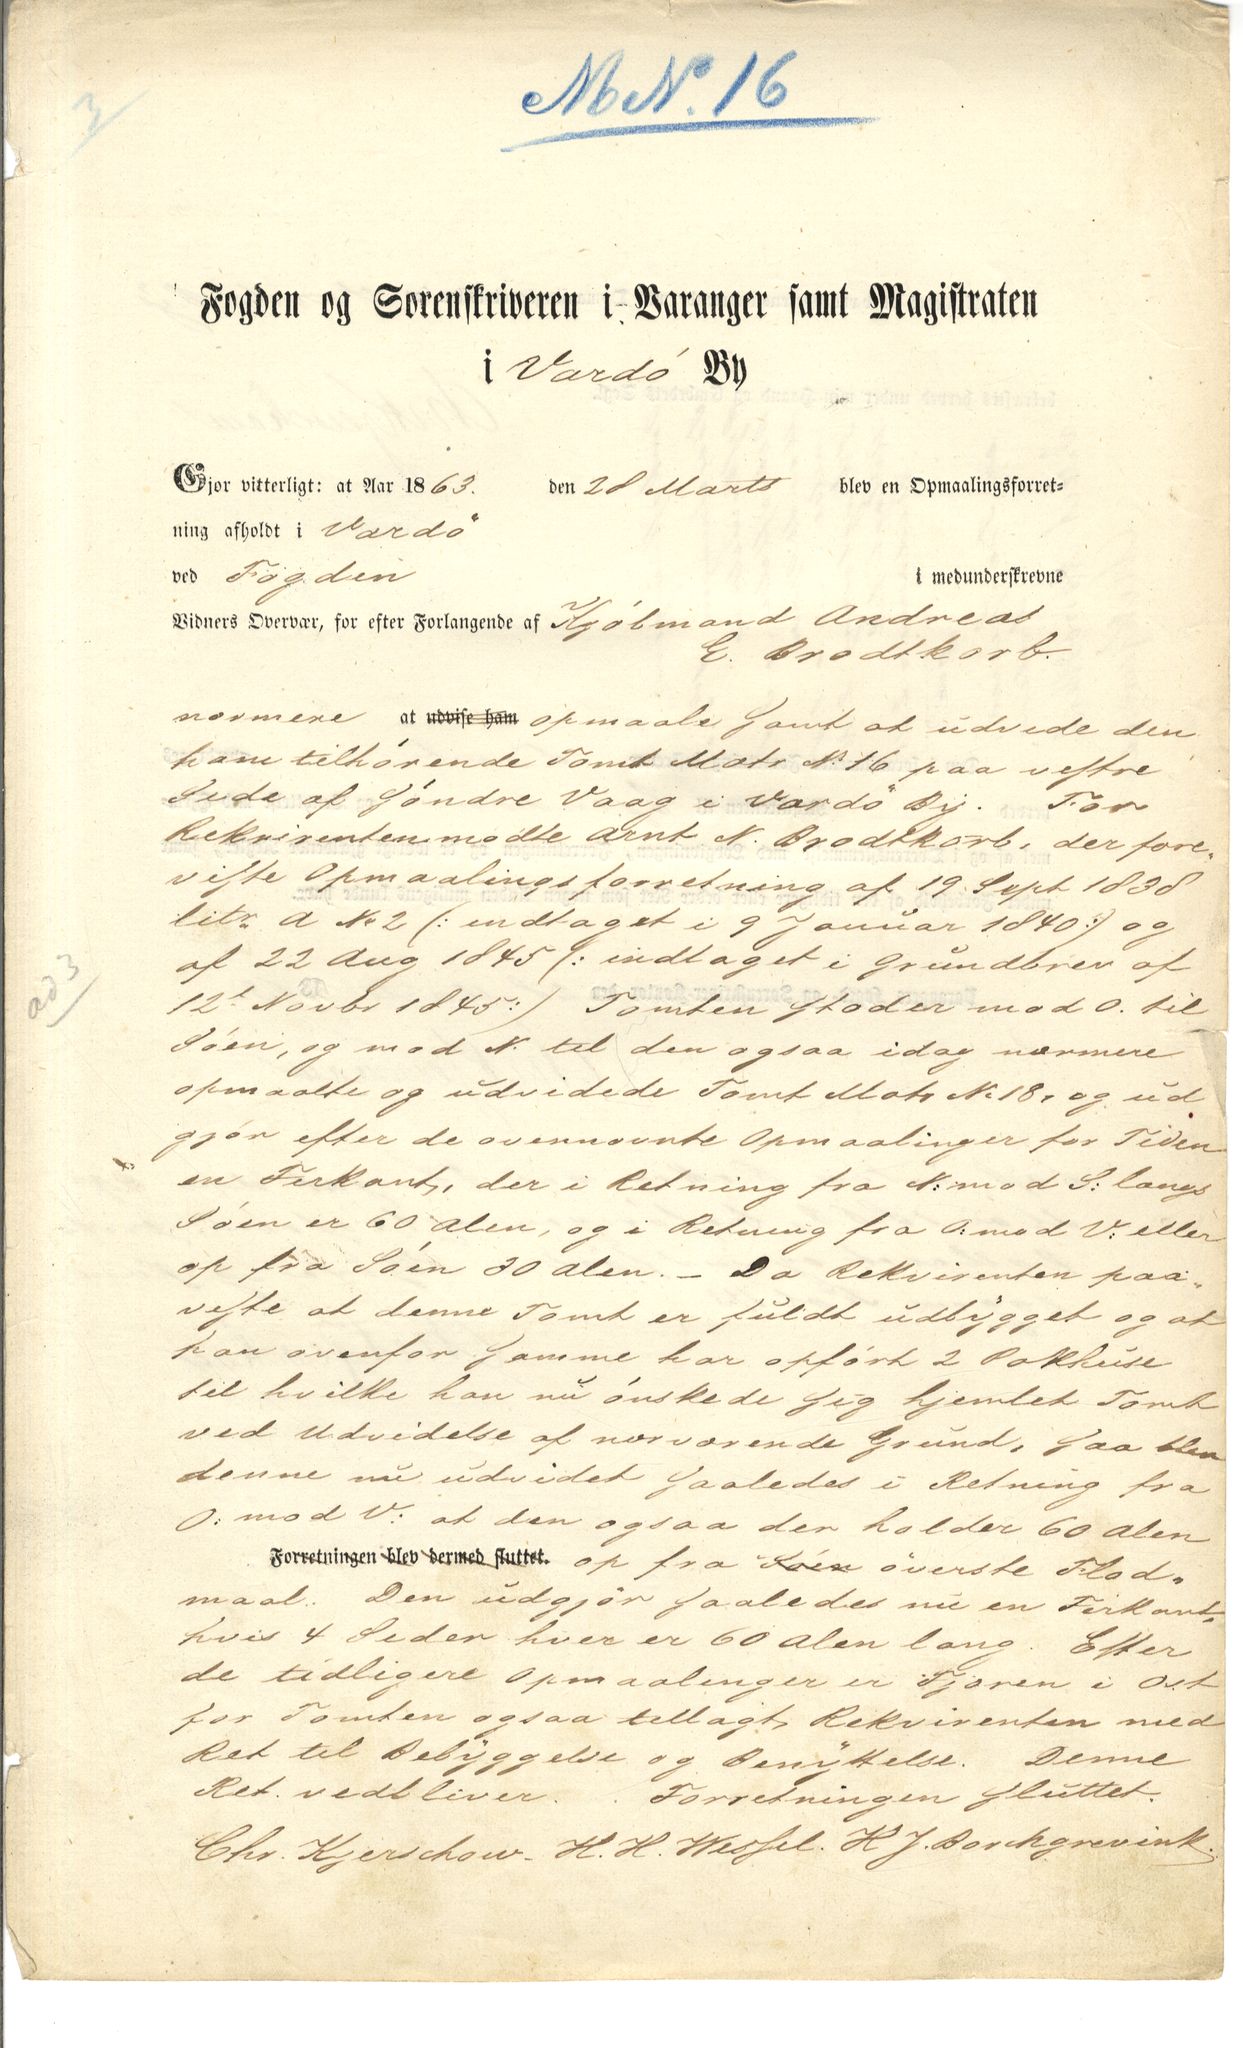 3
M N. 16
Fogden og Sorenskriveren i Varanger samt Magistraten
i Vardö By
Gjør vitterligt: at Aar 1863. den 28 Marts blev en Opmaalingsforret-
ning afholdt i Vardö
ved Fogden i medunderskrevne
Vidners Overvær, for efter Forlangende af Kjöbmand Andreas
E. Brodtkorb.
nærmere at udvise ham opmaale samt at udvide den
ham tilhörende Tomt Matr N. 16 paa vestre
Side af söndre Vaag i Vardö By. For
Rekvirenten mödte Arnt N. Brodtkorb, der fore-
viste Opmaalingsforretning af 19 Sept 1838
litr. A No 2 (: indtaget i 9 Januar 1840:) og
af 22 Aug 1845 (: indtaget i Grundbrev af
ad 3
12t Novbr 1845:) Tomten støder mod O. til
Söen, og mod N. til den ogsaa idag nærmere
opmaalte og udvidede Tomt Matr. N. 18, og ud
gjör efter de ovennævnte Opmaalinger for Tiden
en Firkant, der i Retning fra N: mod S: langs
Söen er 60 Alen, og i Retning fra O: mod V: eller
op fra Söen 30 Alen. - Da Rekvirenten paa-
viste at denne Tomt er fuldt udbygget og at
han ovenfor samme har opfört 2 Pakhuse
til hvilke han nu önskede sig hjemlet Tomt
ved Udvidelse af nærværende Grund, saa blev
denne nu udvidet saaledes i Retning fra
O: mod V: at den ogsaa der holder 60 Alen
Forretningen blev dermed sluttet. op fra Söen överste Flod-
maal. Den udgjör saaledes nu en Firkant,
hvis 4 Sider hver er 60 Alen lang. Efter
de tidligere Opmaalinger er Fjæren i Ost
for Tomten ogsaa tillagt Rekvirenten med
Ret til Bebyggelse og Benyttelse. Denne
Ret vedbliver. Forretningen sluttet.
Chr. Kjerschow. H. H. Wessel. H J. Borchgrevink.